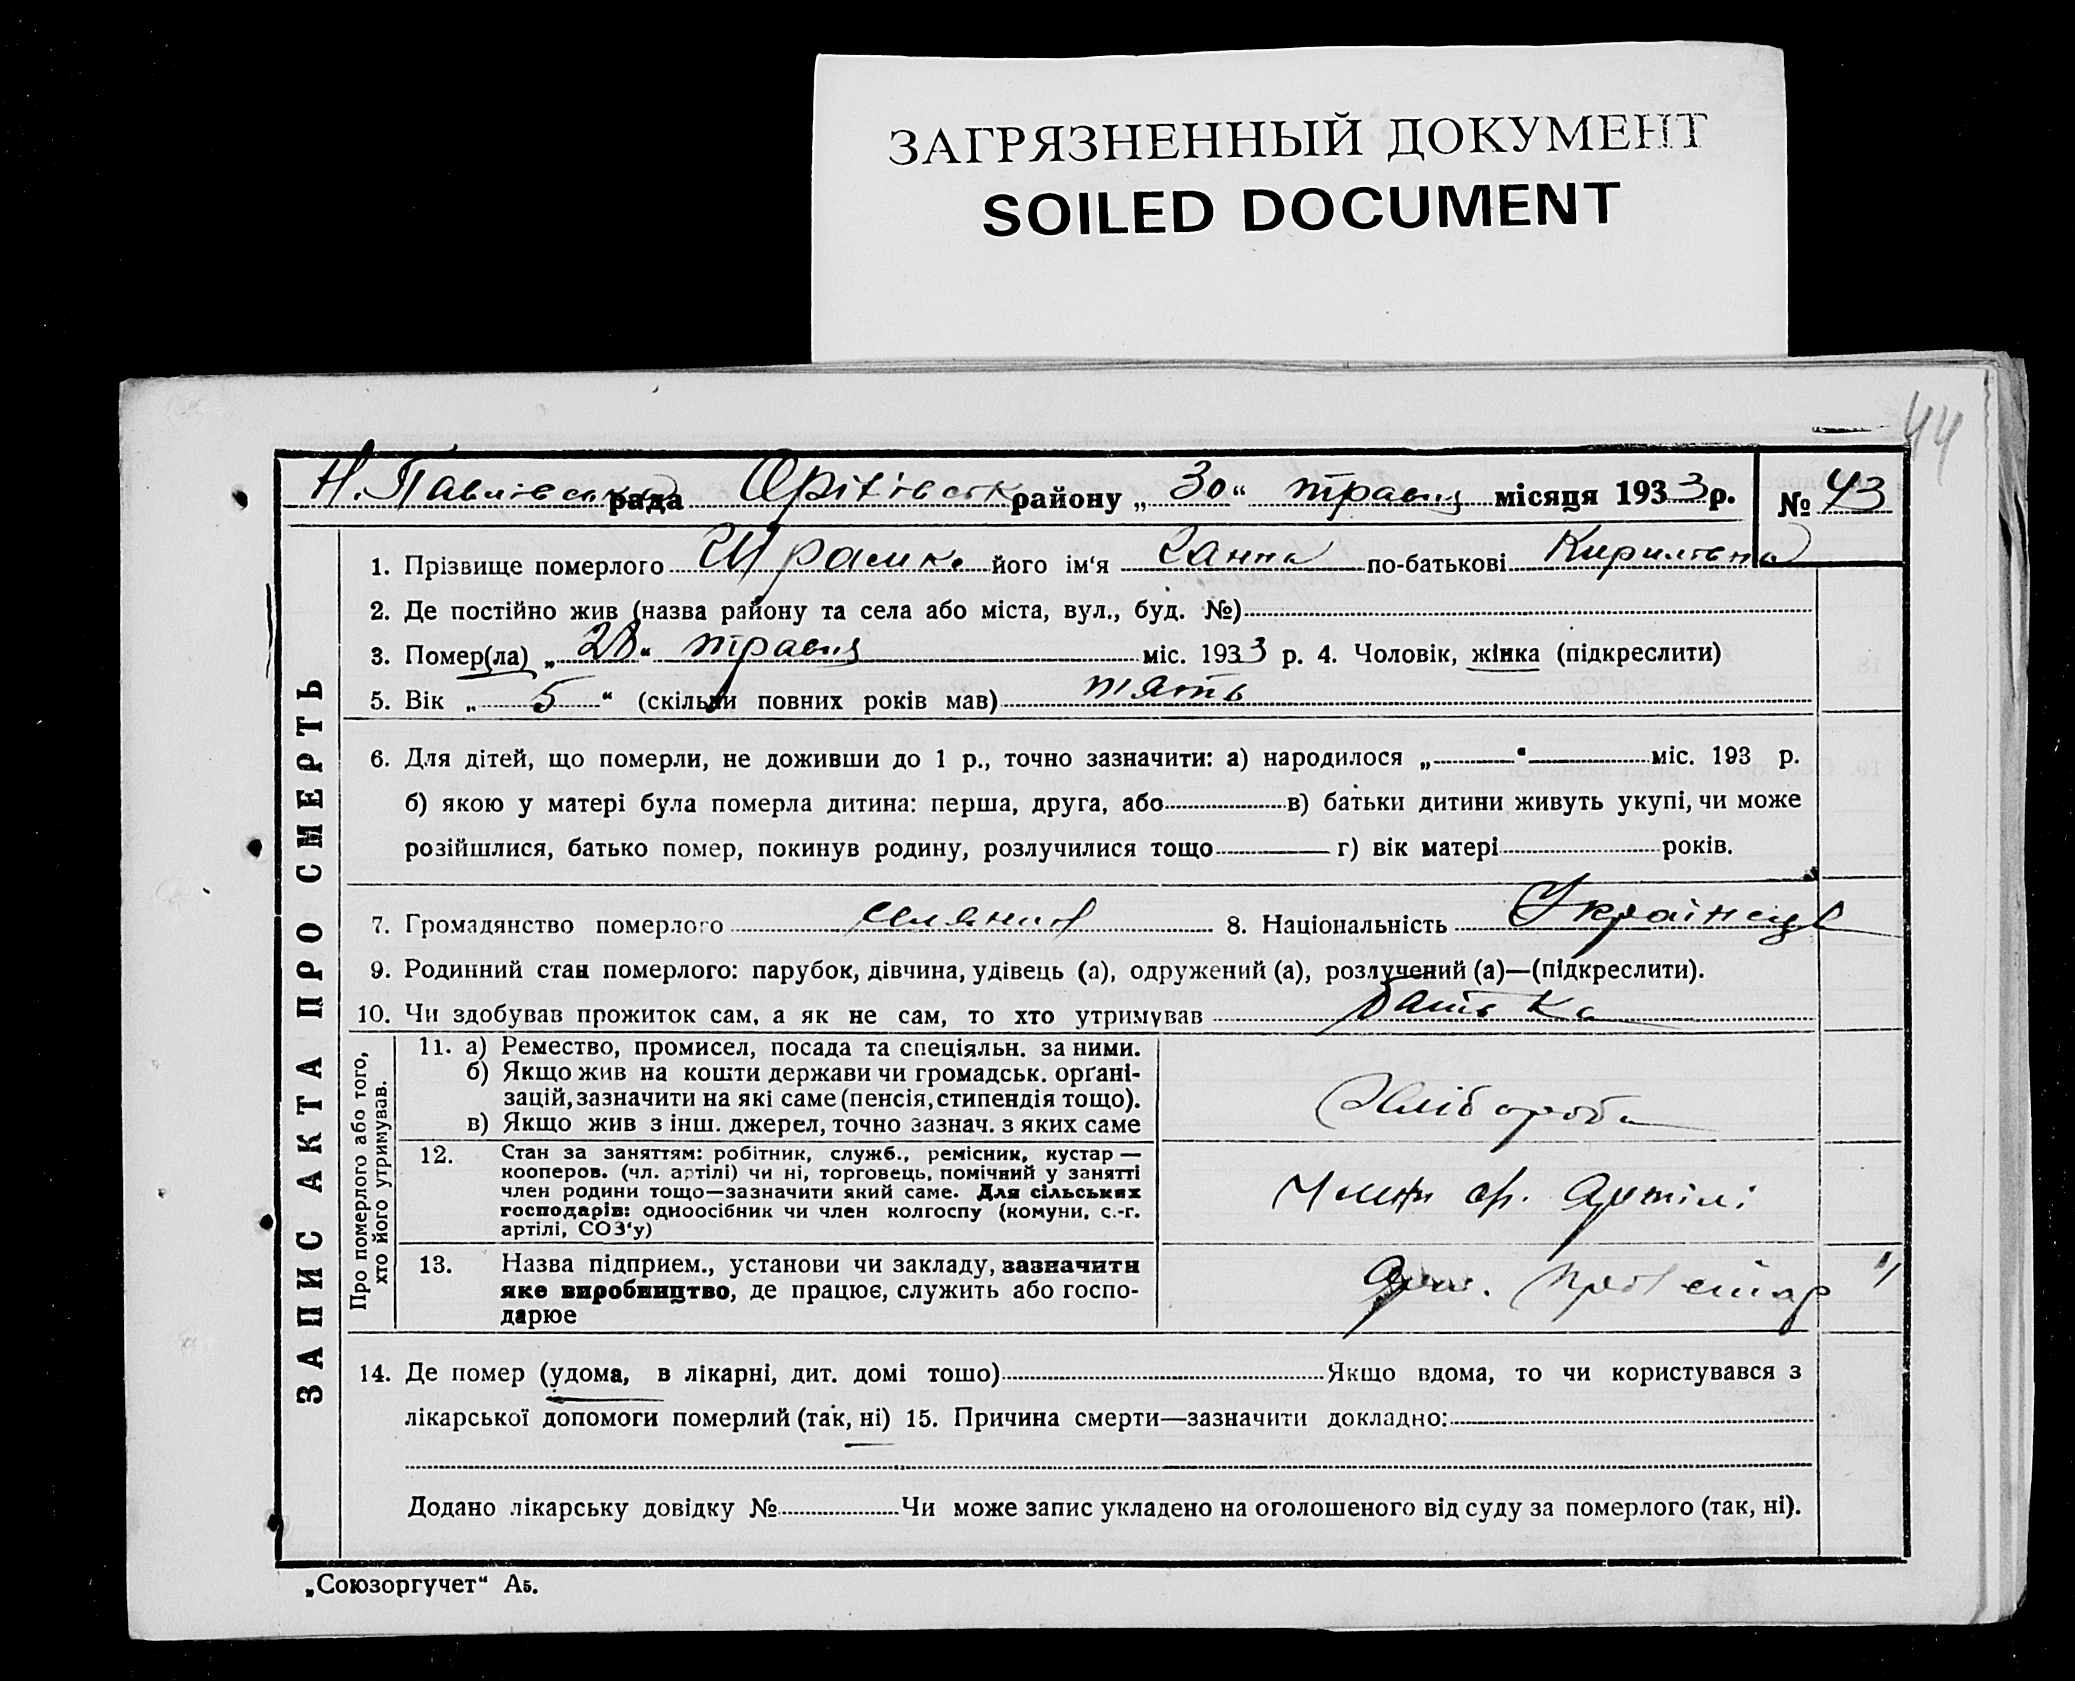 ЗАГРЯЗНЕННЫЙ ДОКУМЕНТ
SOILED DOCUMENT
44
Н. Павлівська рада Оріхівськ району „30“ травня місяця 1933 р. № 43
ЗАПИС АКТА ПРО СМЕРТЬ
1. Прізвище померлого його ім'я Ганна по-батькові Кирилівна
2. Де постійно жив (назва району та села або міста, вул., буд. №)
3. Помер(ла) „28“ травня міс. 1933 р. 4. Чоловік, жінка (підкреслити)
5. Вік „5“ (скільки повних років мав) пять
6. Для дітей, що померли, не доживши до 1 р., точно зазначити: а) народилося „ “ міс. 193 р.
б) якою у матері була померла дитина: перша, друга, або в) батьки дитини живуть укупі, чи може
розійшлися, батько помер, покинув родину, розлучилися тощо г) вік матері років.
7. Громадянство померлого селянин 8. Національність Українець
9. Родинний стан померлого: парубок, дівчина, удівець (а), одружений (а), розлучений (а)—(підкреслити).
10. Чи здобував прожиток сам, а як не сам, то хто утримував батька
Про померлого або того,
хто його утримував.
11. а) Ремество, промисел, посада та спеціяльн. за ними.
б) Якщо жив на кошти держави чи громадськ. орґані-
зацій, зазначити на які саме (пенсія, стипендія тощо).
в) Якщо жив з інш. джерел, точно зазнач. з яких саме
Хлібороб
12. Стан за заняттям: робітник, служб., ремісник, кустар —
кооперов. (чл. артілі) чи ні, торговець, помічний у занятті
член родини тощо—зазначити який саме. Для сільських
господарів: одноосібник чи член колгоспу (комуни, с.-г.
артілі, СОЗ'у)
Член ар. Артілі
13. Назва підприєм., установи чи закладу, зазначити
яке виробництво, де працює, служить або госпо-
дарює
Арт. Пролетар "
14. Де помер (удома, в лікарні, дит. домі тощо) Якщо вдома, то чи користувався з
лікарської допомоги померлий (так, ні) 15. Причина смерти—зазначити докладно:
Додано лікарську довідку № Чи може запис укладено на оголошеного від суду за померлого (так, ні).
„Союзоргучет“ А5.